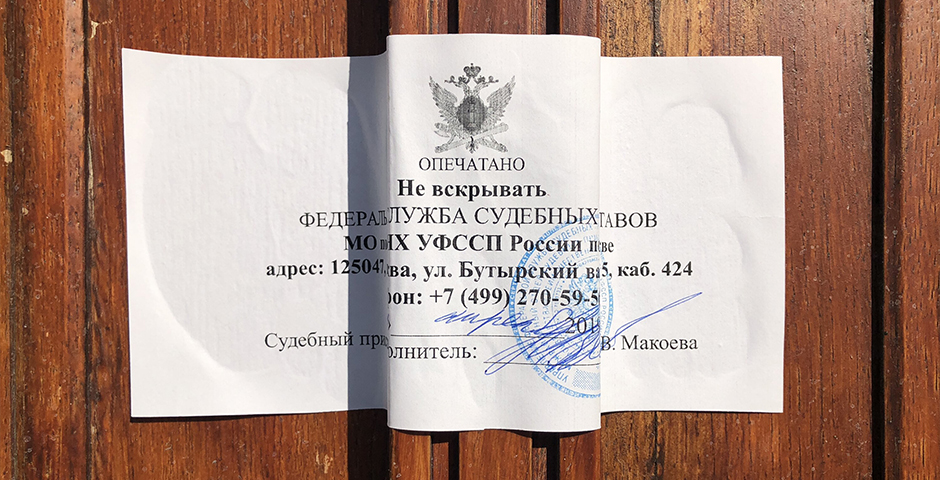 ОПЕЧАТАНО
Не вскрывать
ФЕДЕРАЛЬ ЛУЖБА СУДЕБНЫХ ТАВОВ
МО по ИХ УФССП России ве
адрес: 125047, ва, ул. Бутырский ва 5, каб. 424
он: +7 (499) 270-59-5
апреля 201
Судебный при олнитель: В. Макоева